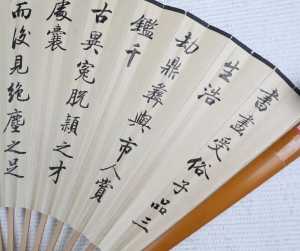 書畫受俗子品三
生浩
劫鼎彝與市人賞
鑑千
古異冤脫穎之才
處囊
而後見絕塵之足